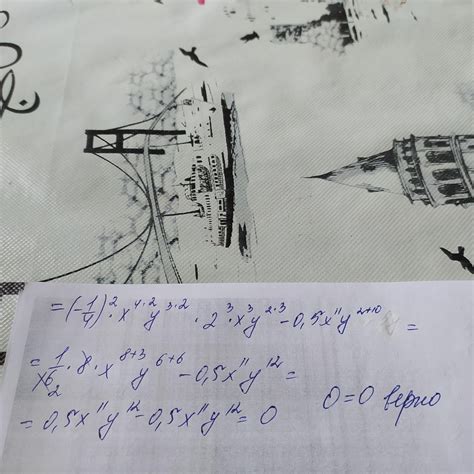 =(-1/4)²·x⁴·²y³·²·2³·x³y²·³-0,5x¹¹y²⁺¹⁰=
=1/16·8·x⁸⁺³y⁶⁺⁶-0,5x¹¹y¹²=
=0,5x¹¹y¹²-0,5x¹¹y¹²=0 0=0 верно